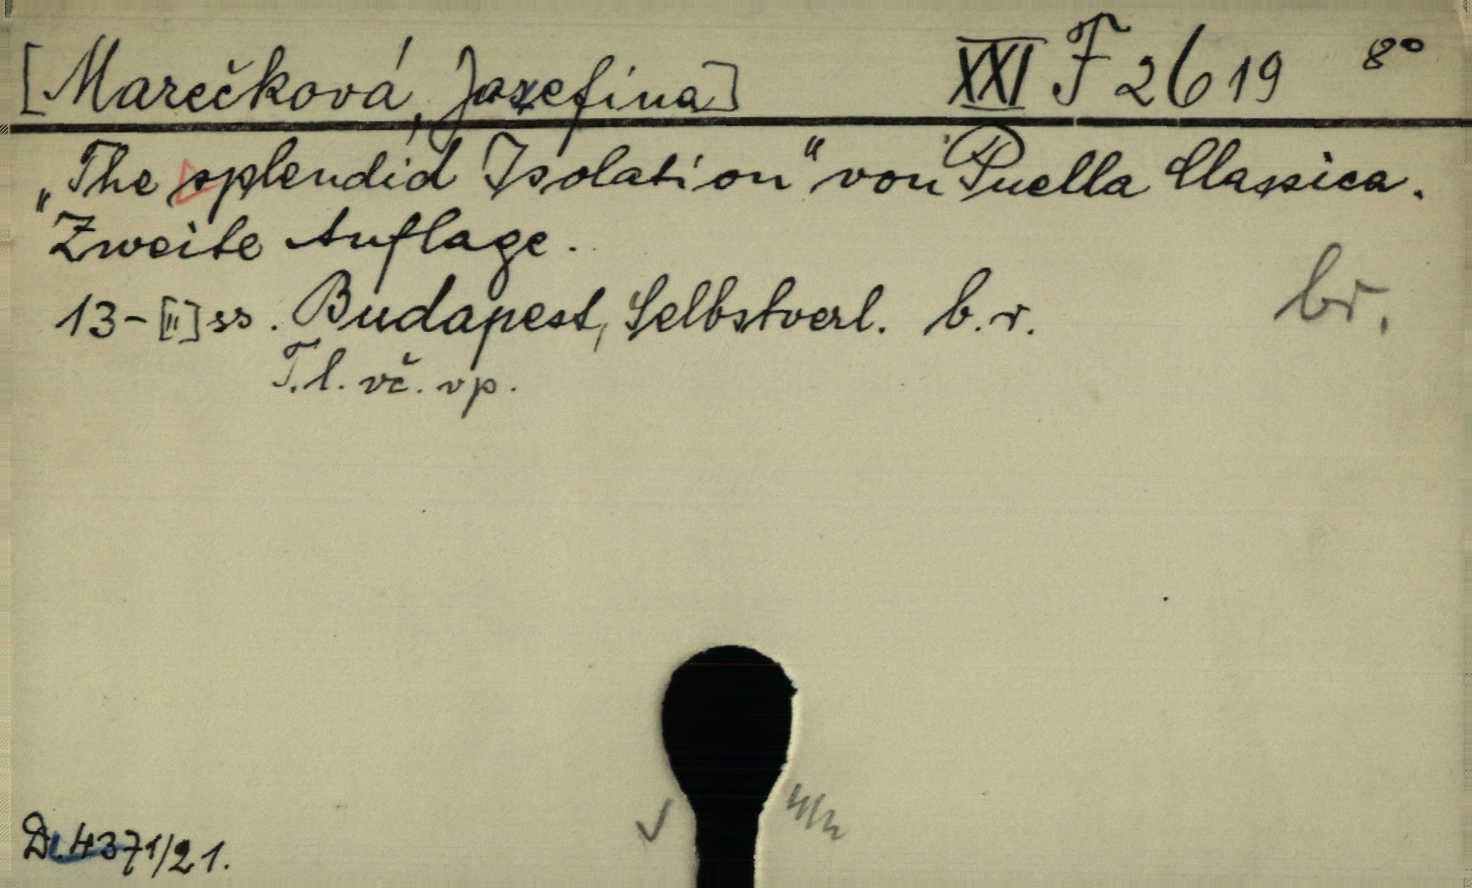 [Marečková, Jozefina] XXI F 2619 8°
„The splendid Isolation“ von Puella Classica.
Zweite Auflage.
13-[II] ss. Budapest, Selbstverl. b. r. br.
T. l. vč. vp.
D. 4371/21.